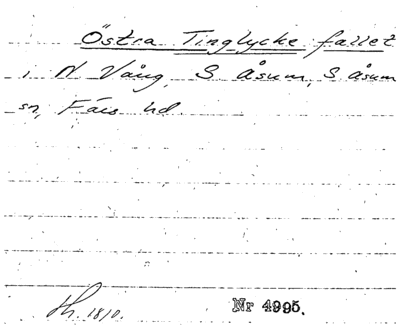 Östra Tinglycke fallet
i N Vång, S Åsum, S Åsum
sn, Färs hd
Sk. 1810.
Nr 4995.